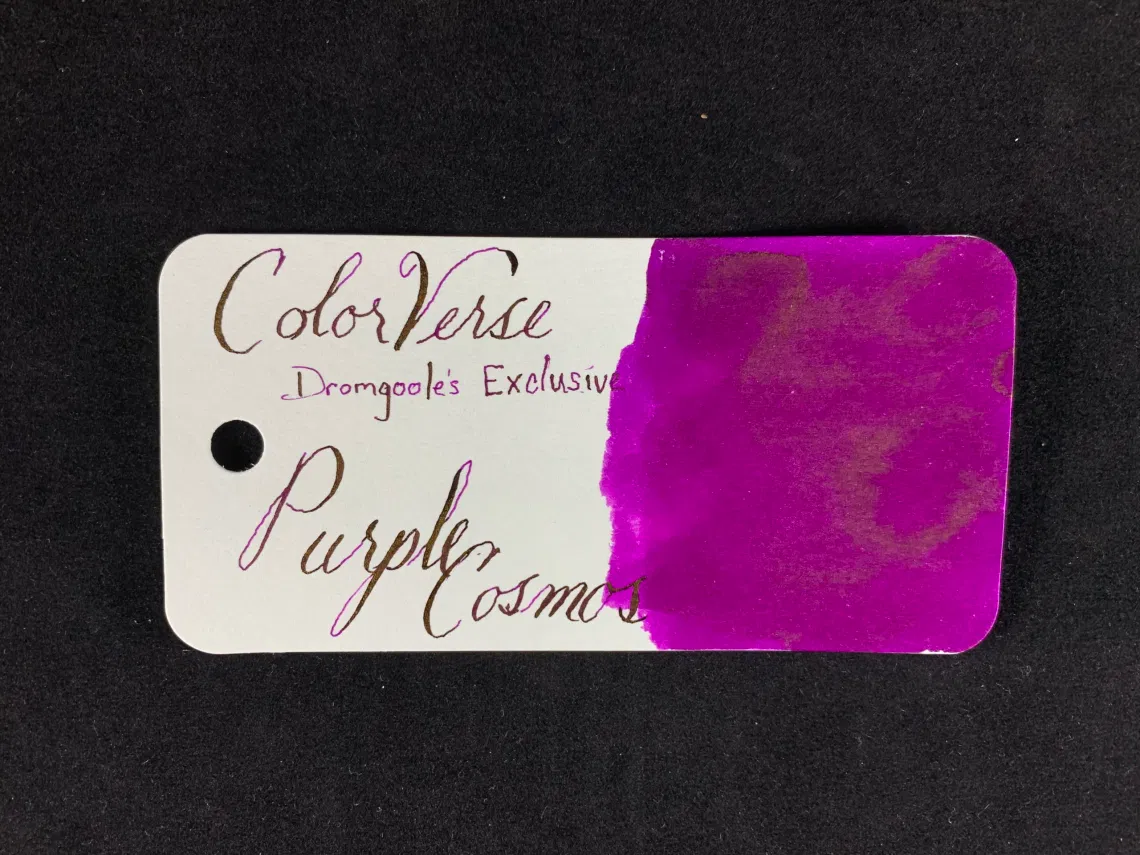 ColorVerse
Dromgoole's Exclusive
Purple
Cosmos